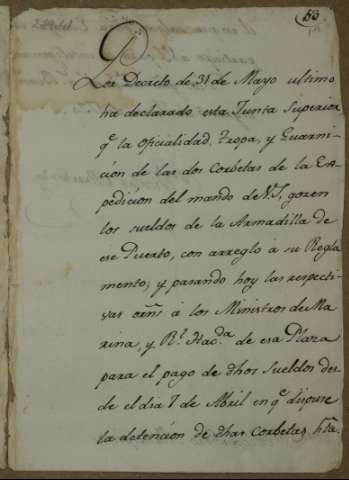 53
Por Decreto de 31 de Mayo ultimo
ha declarado esta Junta Superior
q.e la oficialidad, Tropa, y Guarni-
cion de las dos Corbetas de la Ex-
pedicion del mando de V.S, gozen
los sueldos de la Armadilla de
ese Puerto, con arreglo à su Regla-
mento; y pasando hoy las respecti-
vas orñs à los Ministros de Ma-
rina, y R.l Hac.da de esa Plaza
para el pago de dhos sueldos des-
de el dia 7 de Abril en q.e dispuse
la detencion de dhas Corbetas, hta.